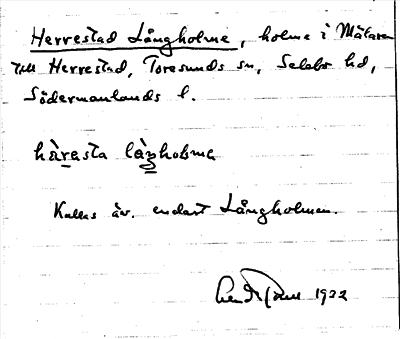 Herrestad Långholme, holme i Mälaren
till Herrestad, Toresunds sn, Selebo hd,
Södermanlands l.
hàrasta låŋholma
Kallas äv. endast Långholmen.
1922